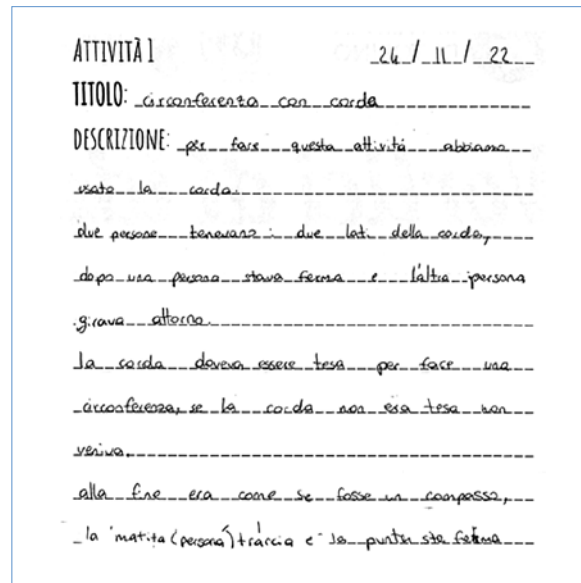 ATTIVITÀ 1 24/11/22
TITOLO: circonferenza con corda
DESCRIZIONE: per fare questa attività abbiamo
usato la corda.
due persone tenevano i due lati della corda,
dopo una persona stava ferma e l'altra persona
girava attorno.
la corda doveva essere tesa per fare una
circonferenza, se la corda non era tesa non
veniva.
alla fine era come se fosse un compasso,
la matita (persona) traccia e la punta sta ferma